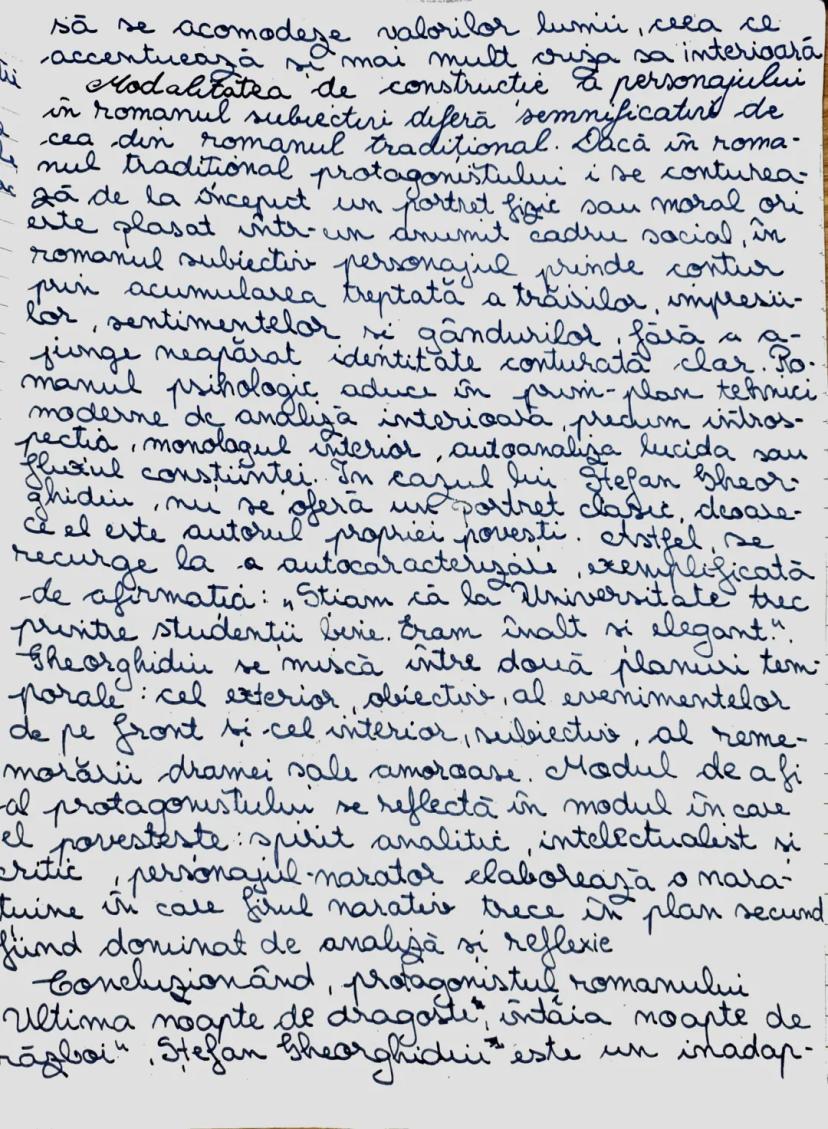 să se acomodeze valorilor lumii, ceea ce
accentuează și mai mult criza sa interioară
Modalitatea de construcție a personajului
în romanul subiectiv diferă semnificativ de
cea din romanul tradițional. Dacă în roma-
nul tradițional protagonistului i se conturea-
ză de la început un portret fizic sau moral ori
este plasat într-un anumit cadru social, în
romanul subiectiv personajul prinde contur
prin acumularea treptată a trăirilor, impresii-
lor, sentimentelor și gândurilor, fără a a-
junge neapărat identitate conturată clar. Ro-
manul psihologic aduce în prim-plan tehnici
moderne de analiză interioară, precum intros-
pecția, monologul interior, autoanaliza lucida sau
fluxul conștiinței. În cazul lui Ștefan Gheor-
ghidiu, nu se oferă un portret clasic, deoare-
ce el este autorul propriei povești. Astfel, se
recurge la a autocaracterizare, exemplificată
de afirmația: „Știam că la Universitate trec
printre studenții bine. Eram înalt și elegant.".
Gheorghidiu se mișcă între două planuri tem-
porale: cel exterior, obiectiv, al evenimentelor
de pe front și cel interior, subiectiv, al reme-
morării dramei sale amoroase. Modul de a fi
al protagonistului se reflectă în modul în care
el povestește: spirit analitic, intelectualist și
critic, personajul-narator elaborează o nara-
țiune în care firul narativ trece în plan secund
fiind dominat de analiză și reflexie
Concluzionând, protagonistul romanului
Ultima noapte de dragoste, întâia noapte de
război", Ștefan Gheorghidiu este un inadap-